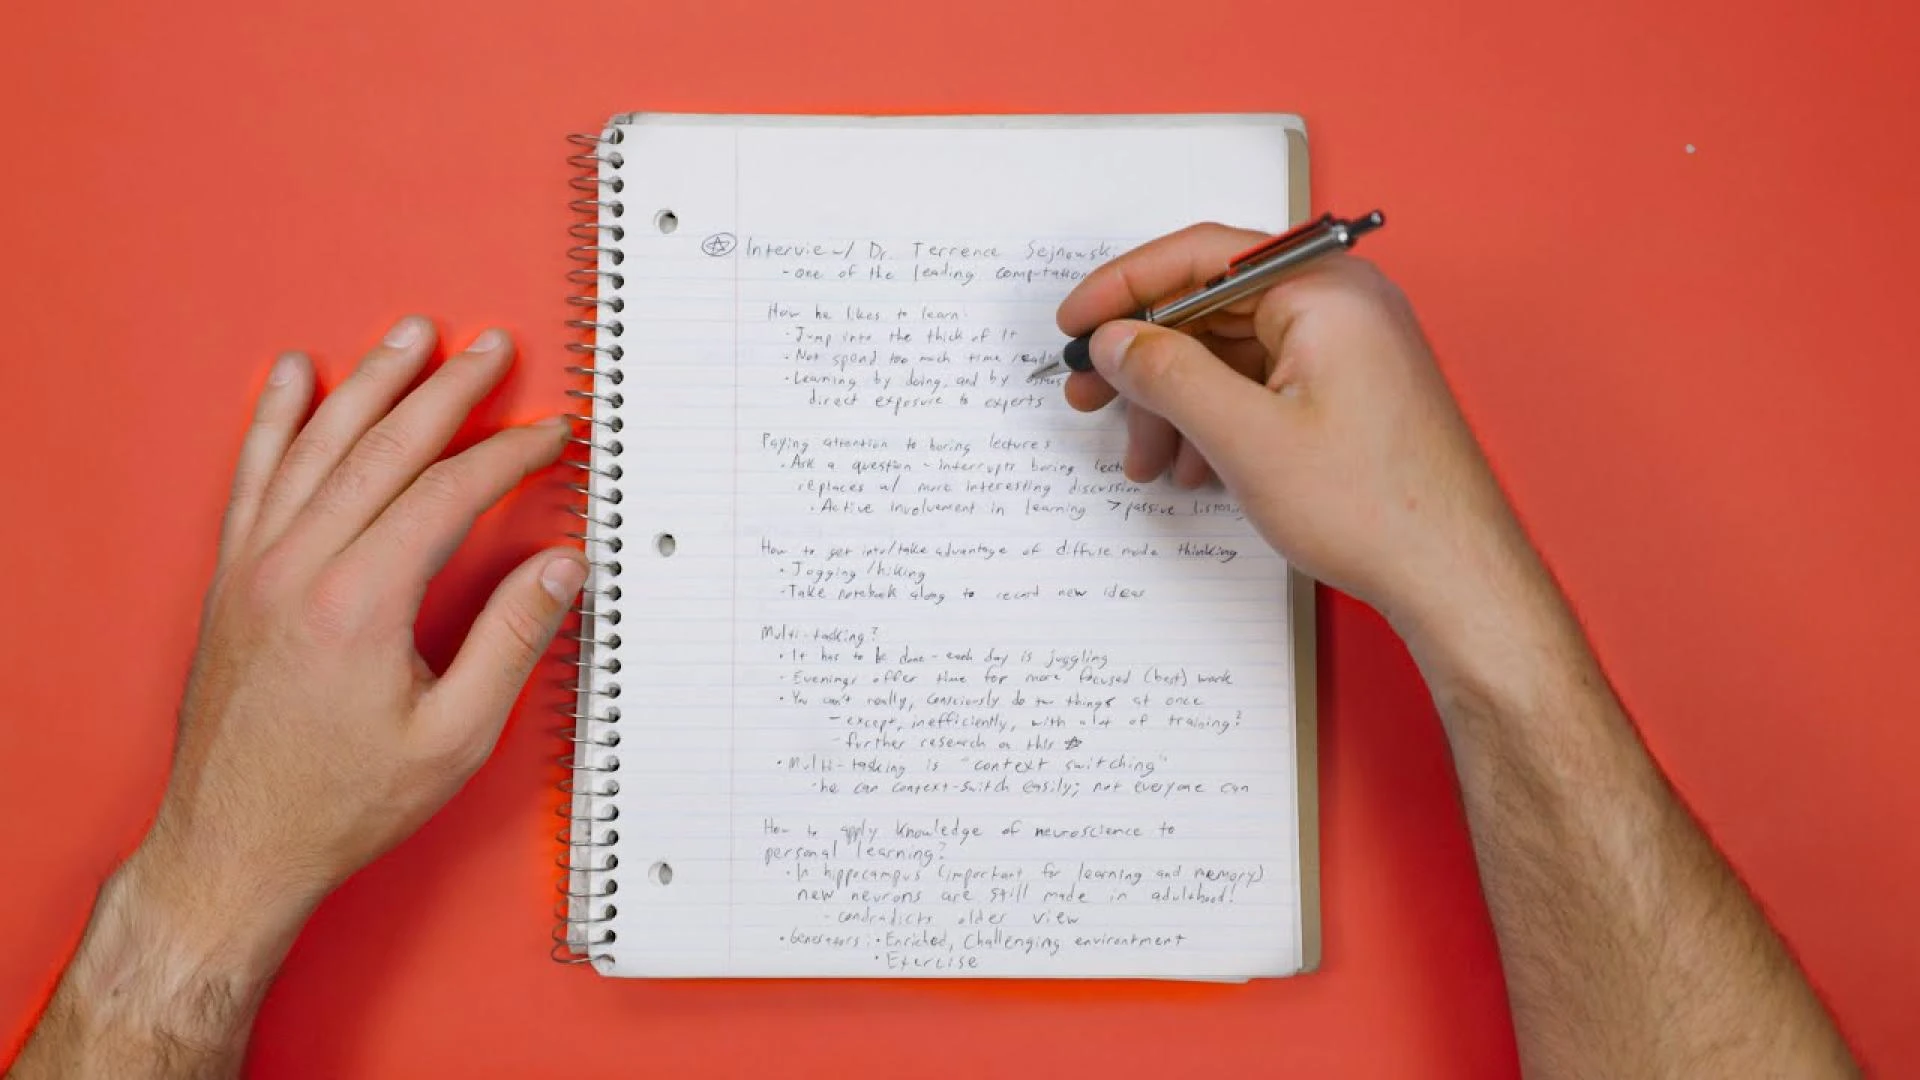 Interview w/ Dr. Terrence Sejnowski
- one of the leading computation
How he likes to learn:
· Jump into the thick of it
· Not spend too much time read
· Learning by doing, and by
direct exposure to experts
Paying attention to boring lectures
· Ask a question - interrupts boring lect
replaces w/ more interesting discussion
· Active involvement in learning > passive listening
How to get into/take advantage of diffuse mode thinking
· Jogging/hiking
· Take notebook along to record new ideas
Multi-tasking?
· It has to be done - each day is juggling
· Evenings offer time for more focused (best) work
· You can't really, consciously do two things at once
- except, inefficiently, with a lot of training?
- further research on this
· Multi-tasking is "context switching"
· he can context-switch easily; not everyone can
How to apply knowledge of neuroscience to
personal learning?
· In hippocampus (important for learning and memory)
new neurons are still made in adulthood!
- contradicts older view
· Generators: · Enriched, challenging environment
· Exercise